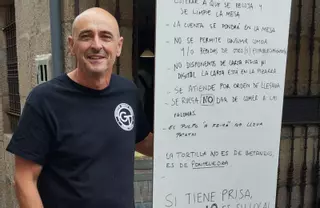 ESPERAR A QUE SE RECOJA Y
SE LIMPIE LA MESA
- LA CUENTA SE PONDRÁ EN LA MESA
- NO SE PERMITE CONSUMIR COMIDA
Y/O BEBIDAS DE OTROS ESTABLECIMIENTOS
- NO DISPONEMOS DE CARTA FÍSICA NI
DIGITAL LA CARTA ESTÁ EN LA PIZARRA
- SE ATIENDE POR ORDEN DE LLEGADA
- SE RUEGA NO DAR DE COMER A LAS
PALOMAS
- EL PULPO A FEIRA NO LLEVA
PATATAS
LA TORTILLA NO ES DE BETANZOS,
ES DE PONTEVEDRA
SI TIENE PRISA,
GT